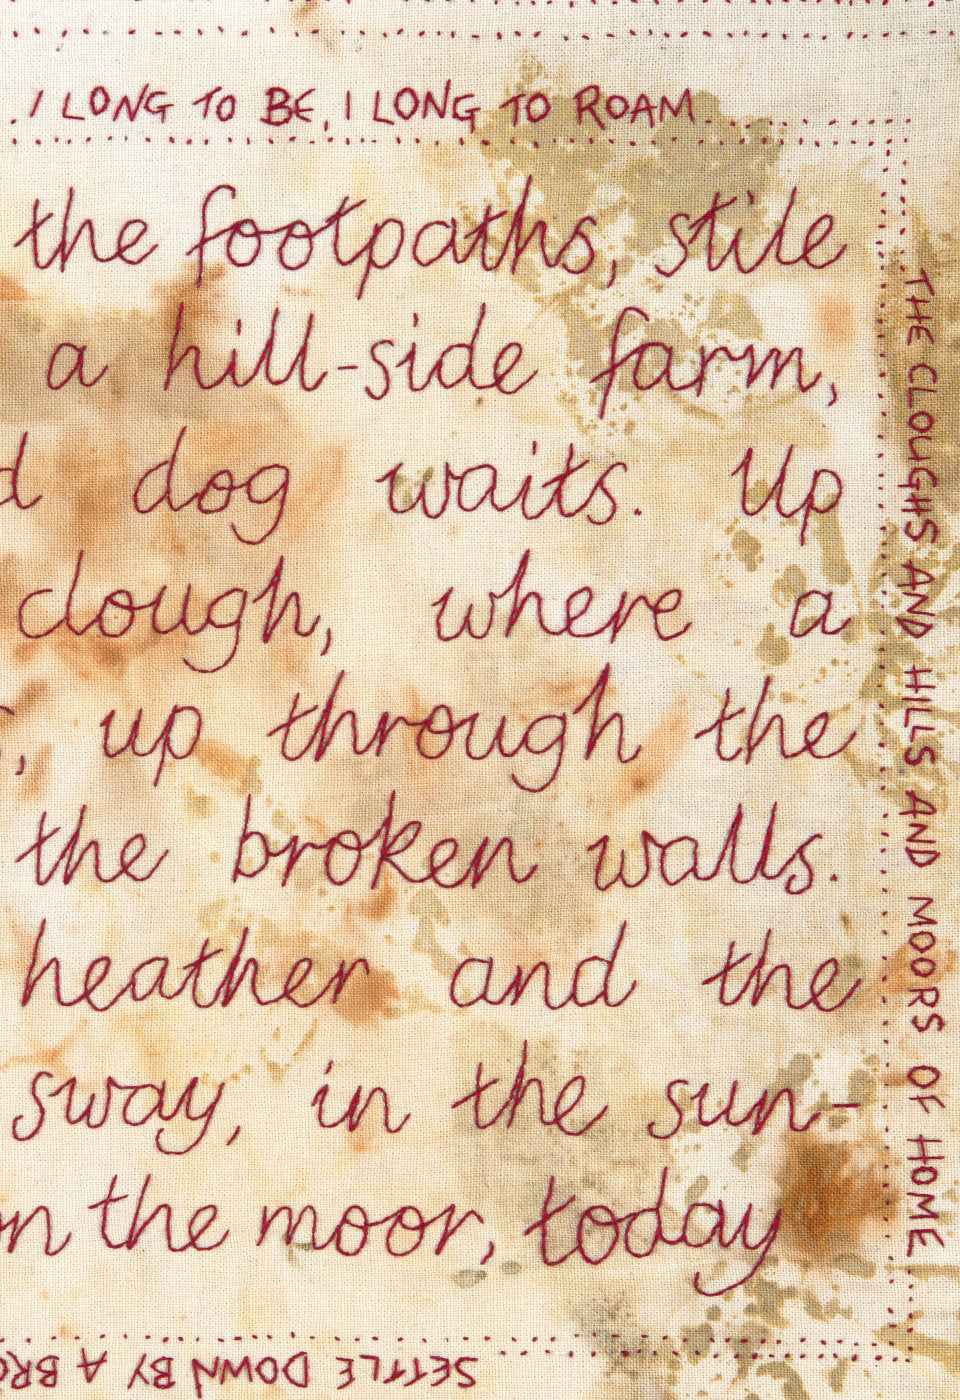 . I LONG TO BE, I LONG TO ROAM
the footpaths, stile
a hill-side farm,
dog waits. Up
clough, where a
, up through the
the broken walls.
heather and the
sway, in the sun-
the moor, today
THE CLOUGHS AND HILLS AND MOORS OF HOME
SETTLE DOWN BY A